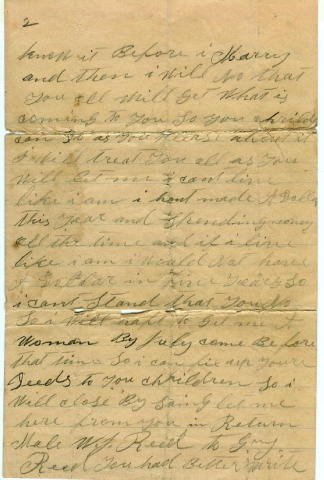 2
know it Before i Marry
and then i Will No that
You all Will Get What is
coming to You So You childrn
can Do as You Please about it
i Will treat You all as You
Will let me i cant live
like i am i hant made A Dollar
this Year and Spending money
all the time and if a live
like i am i Would Not have
A Dollar in five Years So
i cant Stand that You No
So a Will haft to Get me A
Woman By July come Be fore
that time So i can fix up Youre
Deeds to You chrildren So i
Will close By Saing let me
here from You in Return
Male W.J. Reed to
Reed You had Better Write